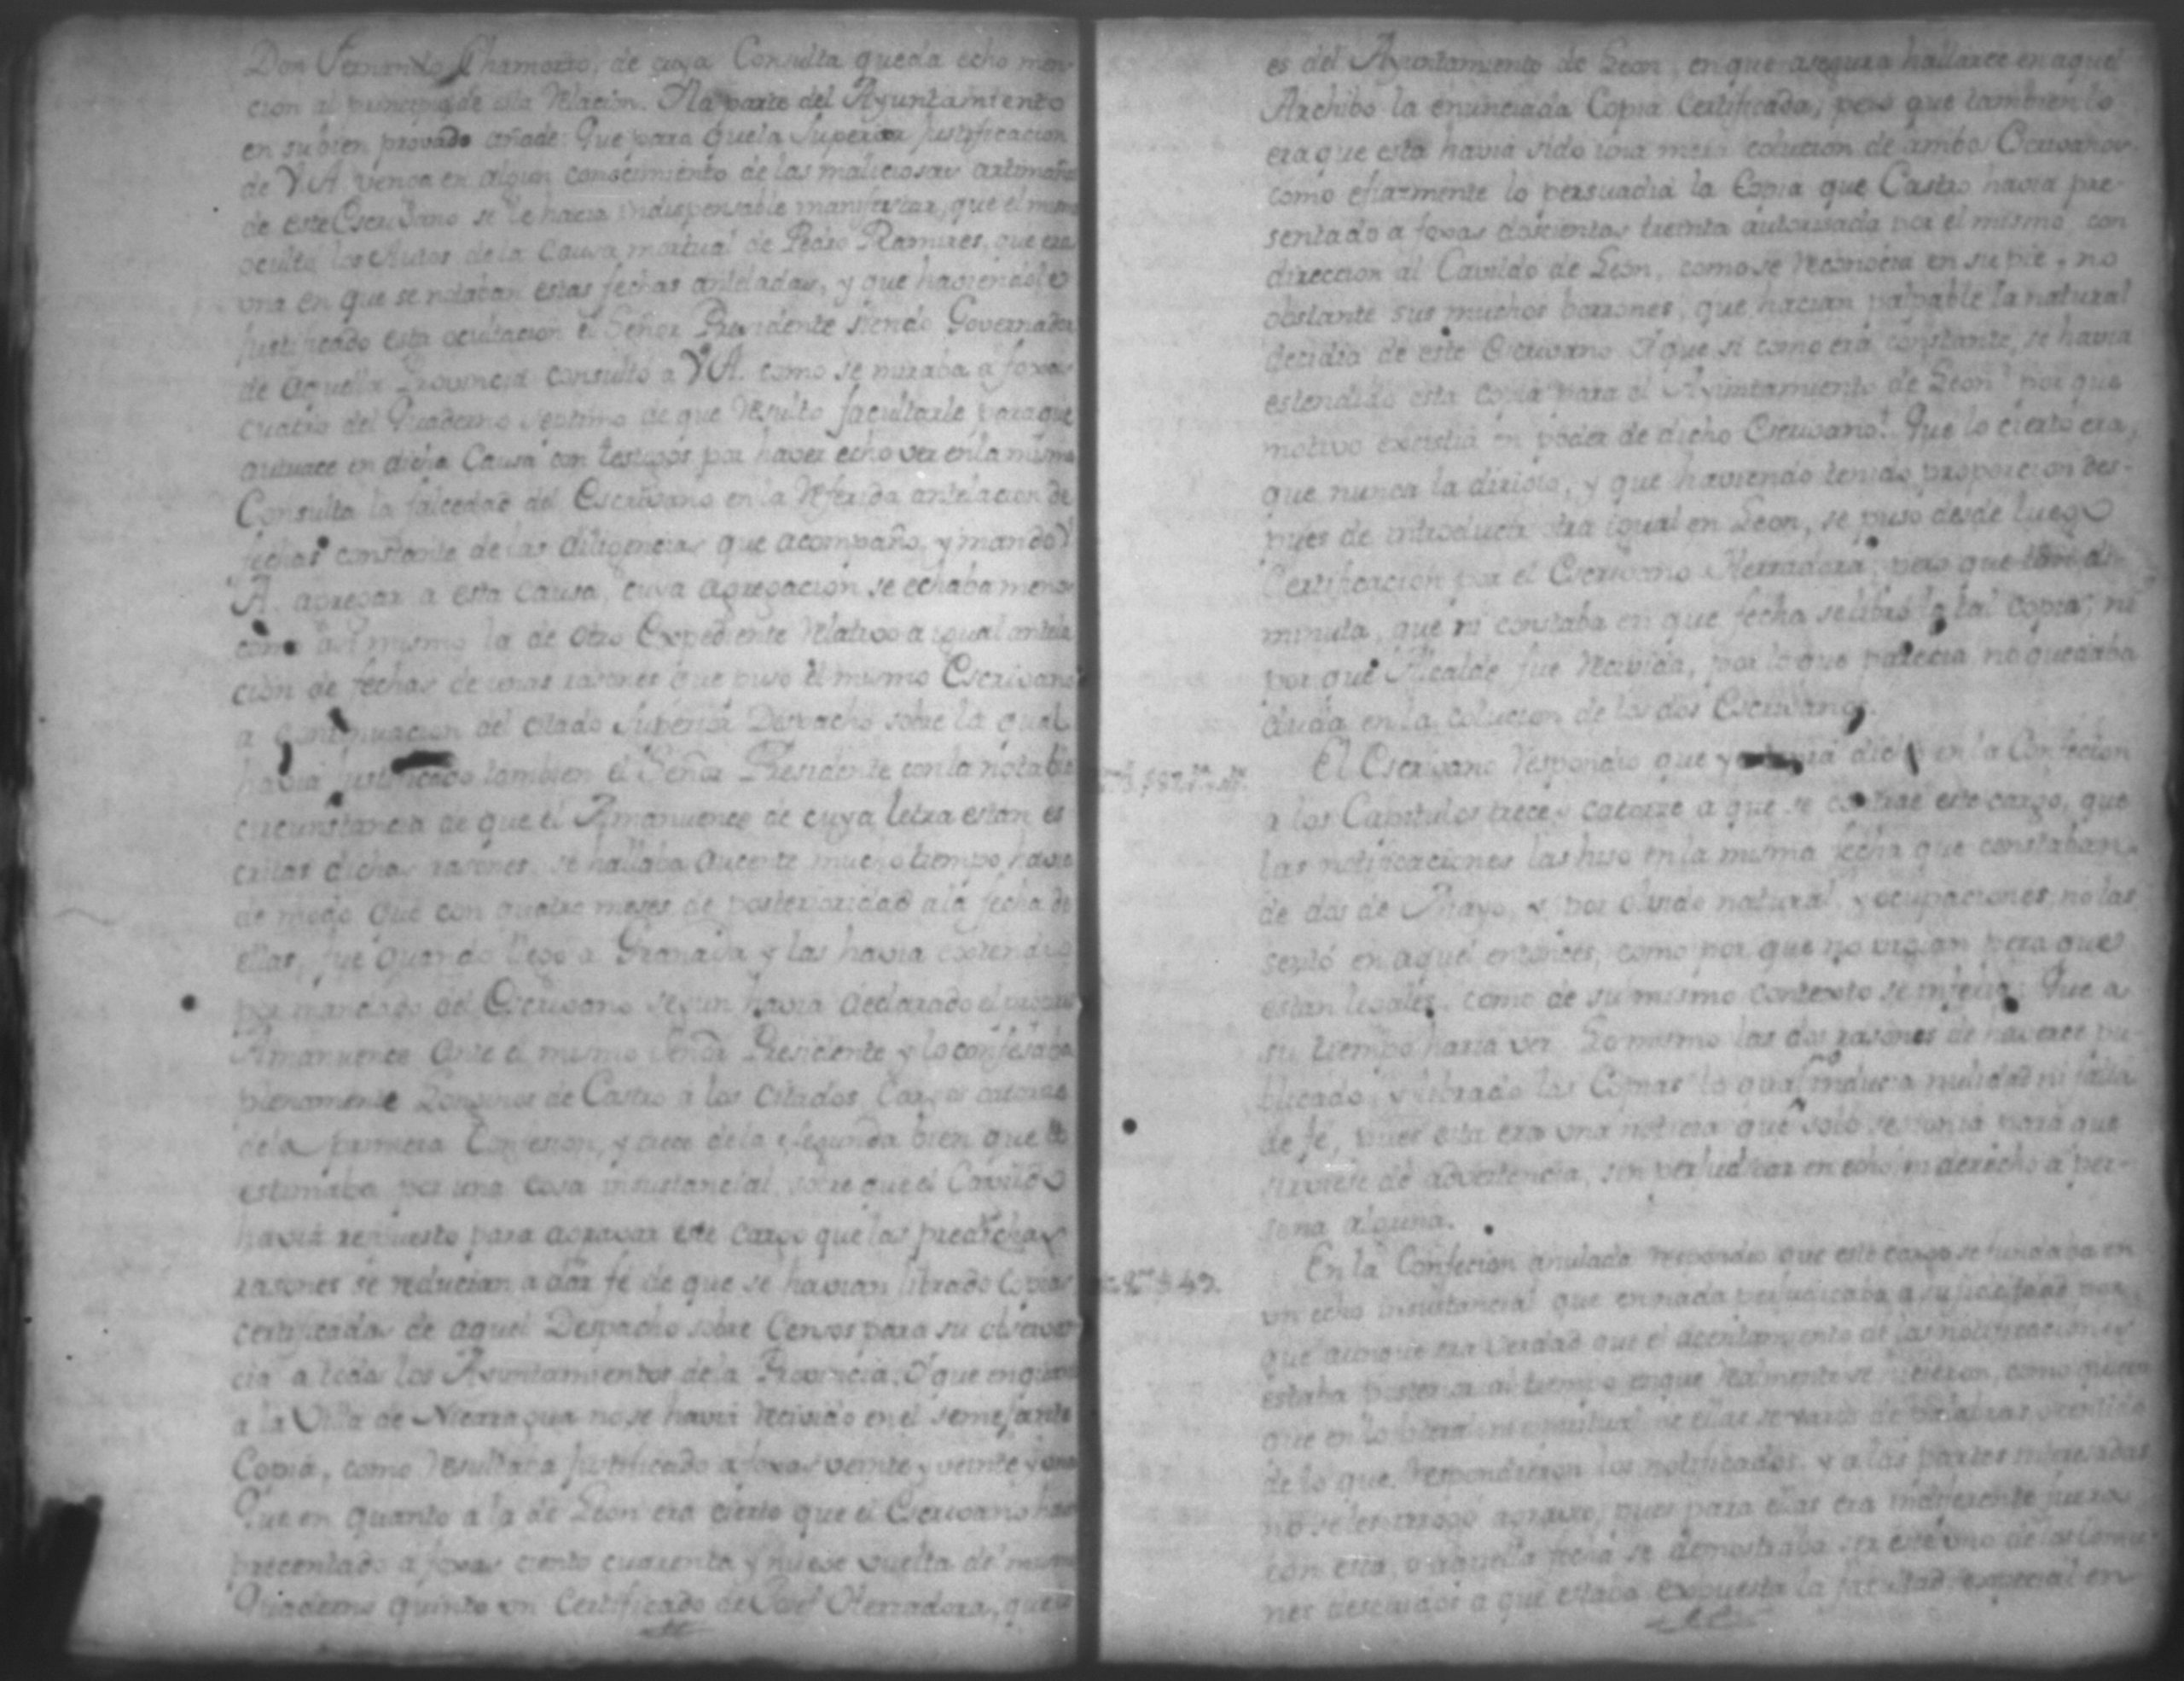 Don Fernando Chamorro, de cuya Consulta queda echo men-
cion al principio de esta Relacion. A la parte del Ayuntamiento
en su bien provado añade: Que para que la Superior Justificacion
de V.A. venga en algun conocimiento de las maliciosas artimañas
de este Escrivano se le hacia indispensable manifestar, que el mismo
oculto los Autos de la Causa mortual de Pedro Ramires, que era
una en que se notaban estas fechas anteladas, y que haviendole
justificado esta ocultacion el Señor Presidente siendo Governador
de aquella Provincia consulto a V.A. como se miraba a foxas
cuatro del Quaderno septimo de que resulto facultarle para que
actuace en dicha Causa con testigos por haver echo ver en la misma
Consulta la falcedad del Escrivano en la referida antelacion de
fechas constante de las diligencias que acompaño, y mando V.
A. agregar a esta causa, cuya agregacion se echaba menos
como asi mismo la de otro Expediente relativo a igual antela
cion de fechas de unas rasones que puso el mismo Escrivano
a continuacion del citado Superior Despacho sobre la qual
havia justificado tambien el Señor Presidente con la notable
circunstancia de que el Amanuence de cuya letra estan es
critas dichas rasones, se hallaba aucente mucho tiempo havia
de modo que con quatro meses de posterioridad a la fecha de
ellas, fue quando llego a Granada y las havia extendido
por mandado del Escrivano segun havia declarado el propio
Amanuence ante el mismo Señor Presidente y lo confesaba
plenamente Longinos de Castro a los citados Cargos catorce
de la primera Confesion, y trece de la segunda bien que lo
estimaba por una cosa insustancial, sobre que el Cavildo
havia repuesto para agravar este cargo que las predichas
rasones se reducian a dar fé de que se havian librado Copias
certificadas de aquel Despacho sobre Censos para su observan
cia a todos los Ayuntamientos de la Provincia. Y que en quanto
a la Villa de Nicaragua no se havia recivido en el semejante
Copia, como resultaba justificado a foxas veinte y veinte y una
Que en quanto a la de Leon era cierto que el Escrivano havia
precentado a foxas ciento cuarenta y nueve vuelta del mismo
Quaderno quinto un Certificado de Josef Herradora, que lo
es del Ayuntamiento de Leon, en que asegura hallarce en aquel
Archibo la enunciada Copia Certificada, pero que tambien lo
era que esta havia sido una mera colucion de ambos Escrivanos
como eficazmente lo persuadia la Copia que Castro havia pre-
sentado a foxas doscientas treinta autorisada por el mismo con
direccion al Cavildo de Leon, como se reconocia en su pie, no
obstante sus muchos borrones, que hacian palpable la natural
decidia de este Escrivano. Y que si como era constante, se havia
estendido esta copia para el Ayuntamiento de Leon? por que
motivo excistia en poder de dicho Escrivano? Que lo cierto era,
que nunca la dirigio, y que haviendo tenido proporcion des-
pues de introducir otra igual en Leon, se puso desde luego
Certificacion por el Escrivano Herradora, pero que tan di-
minuta, que ni constaba en que fecha se libro la tal copia, ni
por que Alcalde fue recivida, por lo que parecia no quedaba
duda en la colucion de los dos Escrivanos.
El Escrivano respondio que ya havia dicho en la Confecion
a los Capitulos trece y catorce a que se contrae este cargo, que
las notificaciones las hiso en la misma fecha que constaban
de dos de Mayo, y por olvido natural, y ocupaciones, no las
sentó en aquel entonces, como por que no urgian pero que
estan legales, como de su mismo contexto se inferia: Que a
su tiempo haria ver Lo mismo las dos rasones de haverce pu-
blicado, y librado las Copias lo qual no inducia nulidad ni falta
de fé, pues esta era una noticia que solo se ponia para que
sirviese de advertencia, sin perjudicar en echo, ni derecho a per-
sona alguna.
En la Confecion anulada respondio que este cargo se fundaba en
un echo insustancial que en nada perjudicaba a su fidelidad por-
que aunque era verdad que el acentamiento de las notificaciones
estaba posterior al tiempo en que realmente se hicieron, como quiera
que en lo literal ni en virtual de ellas se varió de palabras o sentido
de lo que respondieron los notificados, y a las partes interesadas
no se les irrogó agravio, pues para ellas era indiferente fuera
con esta, o aquella fecha se demostraba ser este uno de los comu
nes descuidos a que estaba expuesta la facultad, especial en